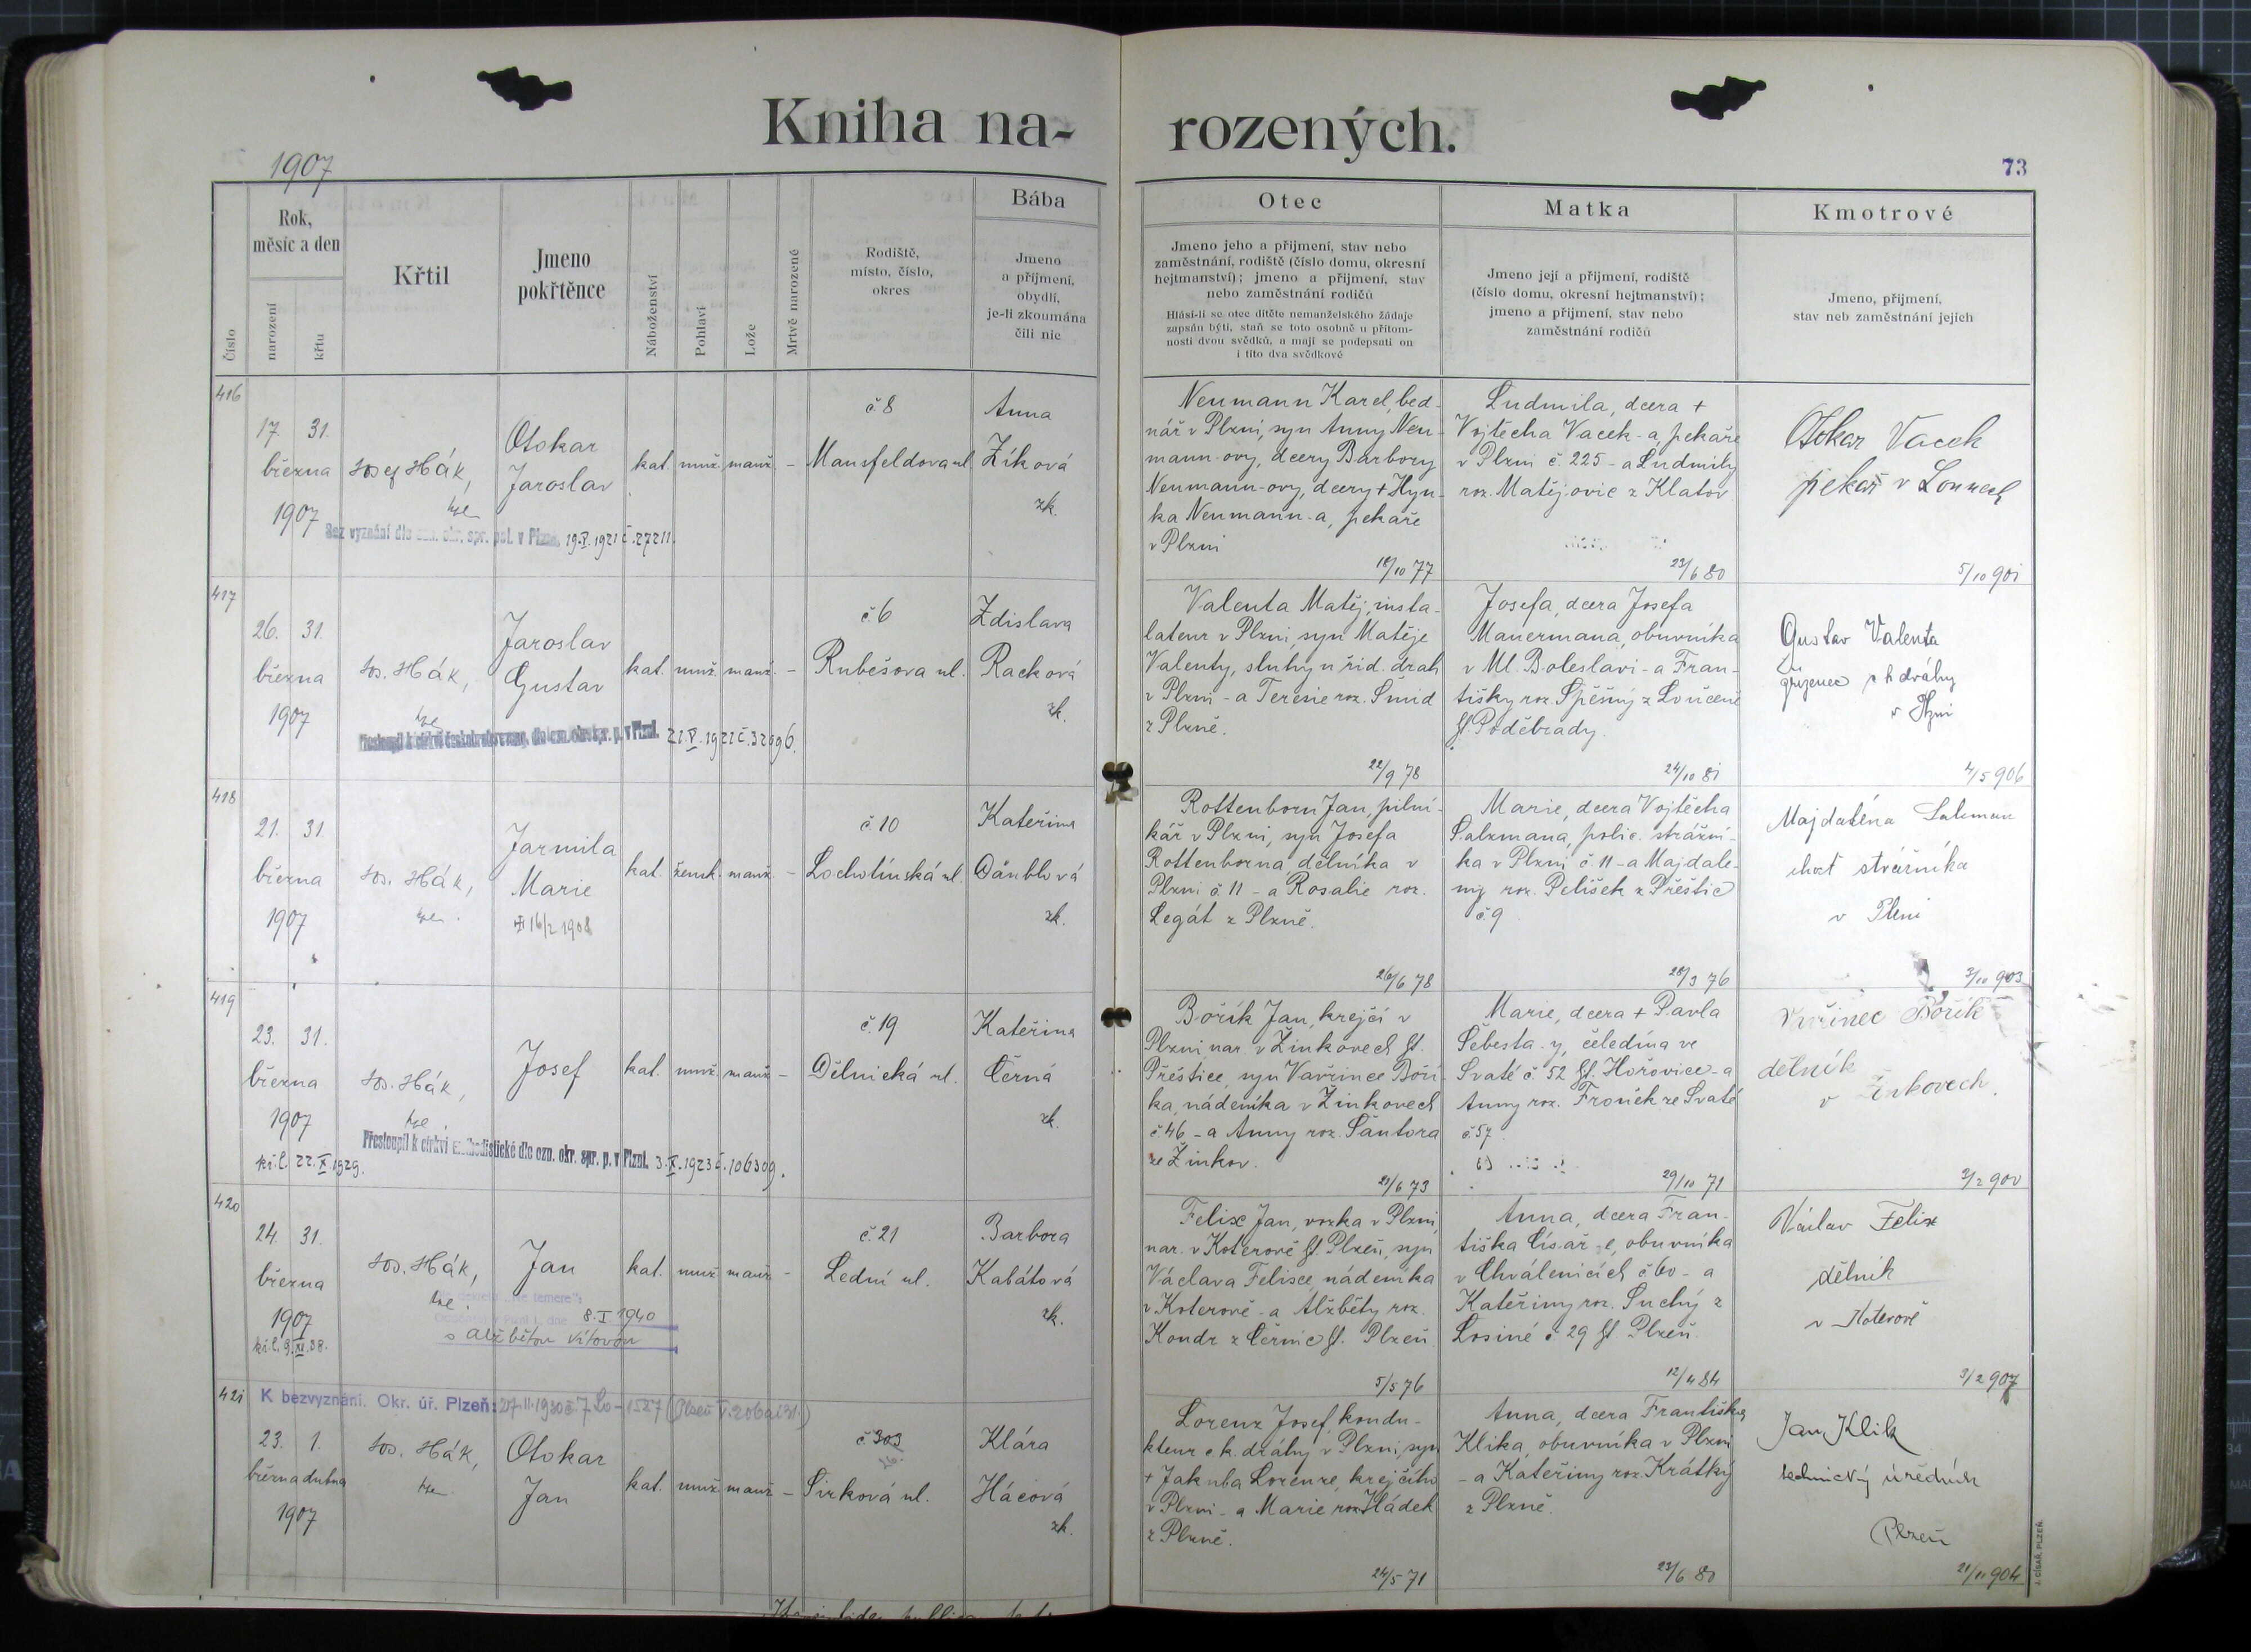 Kniha na-
rozených.
1907
73
Číslo
Rok,
měsíc a den
narození
křtu
Křtil
Jmeno
pokřtěnce
Náboženství
Pohlaví
Lože
Mrtvě narozené
Rodiště,
místo, číslo,
okres
Bába
Jmeno
a příjmení,
obydlí,
je-li zkoumána
čili nic
Otec
Jmeno jeho a přijmení, stav nebo
zaměstnání, rodiště (číslo domu, okresní
hejtmanství); jmeno a přijmení, stav
nebo zaměstnání rodičů
Hlásí-li se otec dítěte nemanželského žádaje
zapsán býti, staň se toto osobně u přítom-
nosti dvou svědků, a mají se podepsati on
i tito dva svědkové
Matka
Jmeno její a přijmení, rodiště
(číslo domu, okresní hejtmanství);
jmeno a přijmení, stav nebo
zaměstnání rodičů
Kmotrové
Jmeno, přijmení,
stav neb zaměstnání jejich
416
17. 31.
března
1907
Josef Hák,
Otokar
Jaroslav
kat. muž. manž. –
č. 8
Mansfeldova ul.
Anna
Zíková
zk.
Bez vyznání dle ozn. okr. spr. pol. v Plzni. 19.V.1921 č. 27211.
Neumann Karel, bed-
nář v Plzni, syn Anny Neu-
mann-ovy, dcery Barbory
Neumann-ovy, dcery + Hyn-
ka Neumann-a, pekaře
v Plzni
18/10 77
Ludmila, dcera +
Vojtěcha Vacek-a, pekaře
v Plzni č. 225 - a Ludmily
roz. Matějovic z Klatov.
23/6 80
Otokar Vacek
pekař v Lounech
5/10 901
417
26. 31.
března
1907
Jos. Hák,
Jaroslav
Gustav
kat. muž. manž. –
č. 6
Rubešova ul.
Zdislava
Racková
zk.
Přestoupil k církvi československé, dle ozn. okr. spr. p. v Plzni. 21.V.1921 č. 32096.
Valenta Matěj, insta-
lateur v Plzni, syn Matěje
Valenty, sluhy u řid. drah
v Plzni - a Teresie roz. Šmid
z Plzně.
22/9 78
Josefa, dcera Josefa
Mauermana, obuvníka
v Ml. Boleslavi - a Fran-
tišky roz. Spěšný z Loučeně
Poděbrady.
24/10 81
Gustav Valenta
zřízenec dráhy
v Plzni
4/5 906
418
21. 31.
března
1907
Jos. Hák,
Jarmila
Marie
16/2 1908
kat. žensk. manž. –
č. 10
Lochotínská ul.
Kateřina
zk.
Rottenborn Jan, pilní-
kář v Plzni, syn Josefa
Rottenborna dělníka v
Plzni č. 11 - a Rosalie roz.
Legát z Plzně.
26/6 78
Marie, dcera Vojtěcha
Salzmana, polic. strážní-
ka v Plzni č. 11 - a Majdale-
ny roz. Pelíšek z Přeštic
č. 9
28/3 76
Majdaléna Salzman
choť strážníka
v Plzni
3/10 903
419
23. 31.
března
1907
22.X.1929.
Jos. Hák,
Josef
kat. muž. manž. –
č. 19
Dělnická ul.
Kateřina
Černá
zk.
Přestoupil k církvi methodistické dle ozn. okr. spr. p. v Plzni. 3.X.1923 č. 106309.
Bořík Jan, krejčí v
Plzni, nar. v Žinkovech
Přeštice, syn Vavřince Boří-
ka, nádeníka v Žinkovech
č. 46 - a Anny roz. Šantora
ze Žinkov.
Marie, dcera + Pavla
Šebesta-y, čeledína ve
Svaté č. 52 Hořovice - a
Anny roz. Froněk ze Svaté
č. 57.
29/10 71
Vavřinec Bořík
dělník
v Žinkovech.
3/2 900
420
24. 31.
března
1907
Jos. Hák,
Jan
kat. muž. manž. –
č. 21
Lední ul.
Barbora
Kabátová
zk.
„Ne temere":
8.I.1940
s Alžbětou Vítovou
Felix Jan, vozka v Plzni,
nar. v Koterově Plzeň, syn
Václava Felixe, nádeníka
v Koterově - a Alžběty roz.
Kondr z Černic Plzeň
5/5 76
Anna, dcera Fran-
tiška Císaře, obuvníka
v Chválenicích č. 60 - a
Kateřiny roz. Suchý z
Losiné č 29 Plzeň.
12/4 84
Václav Felix
dělník
v Koterově
3/2 907
421
K bezvyznání. Okr. úř. Plzeň:
23. 1.
března dubna
1907
Jos. Hák,
Otokar
Jan
kat. muž. manž. –
č. 303
Sirková ul.
Klára
Hácová
zk.
Lorenz Josef, kondu-
kteur c.k. dráhy v Plzni, syn
+ Jakuba Lorenze, krejčího
v Plzni - a Marie roz. Hládek
z Plzně.
24/5 71
Anna, dcera Františka
Klika, obuvníka v Plzni
- a Kateřiny roz. Krátký
z Plzně.
23/6 80
Jan Klik
technický úředník
Plzeň
21/11 904
J. CÍSAŘ, PLZEŇ.